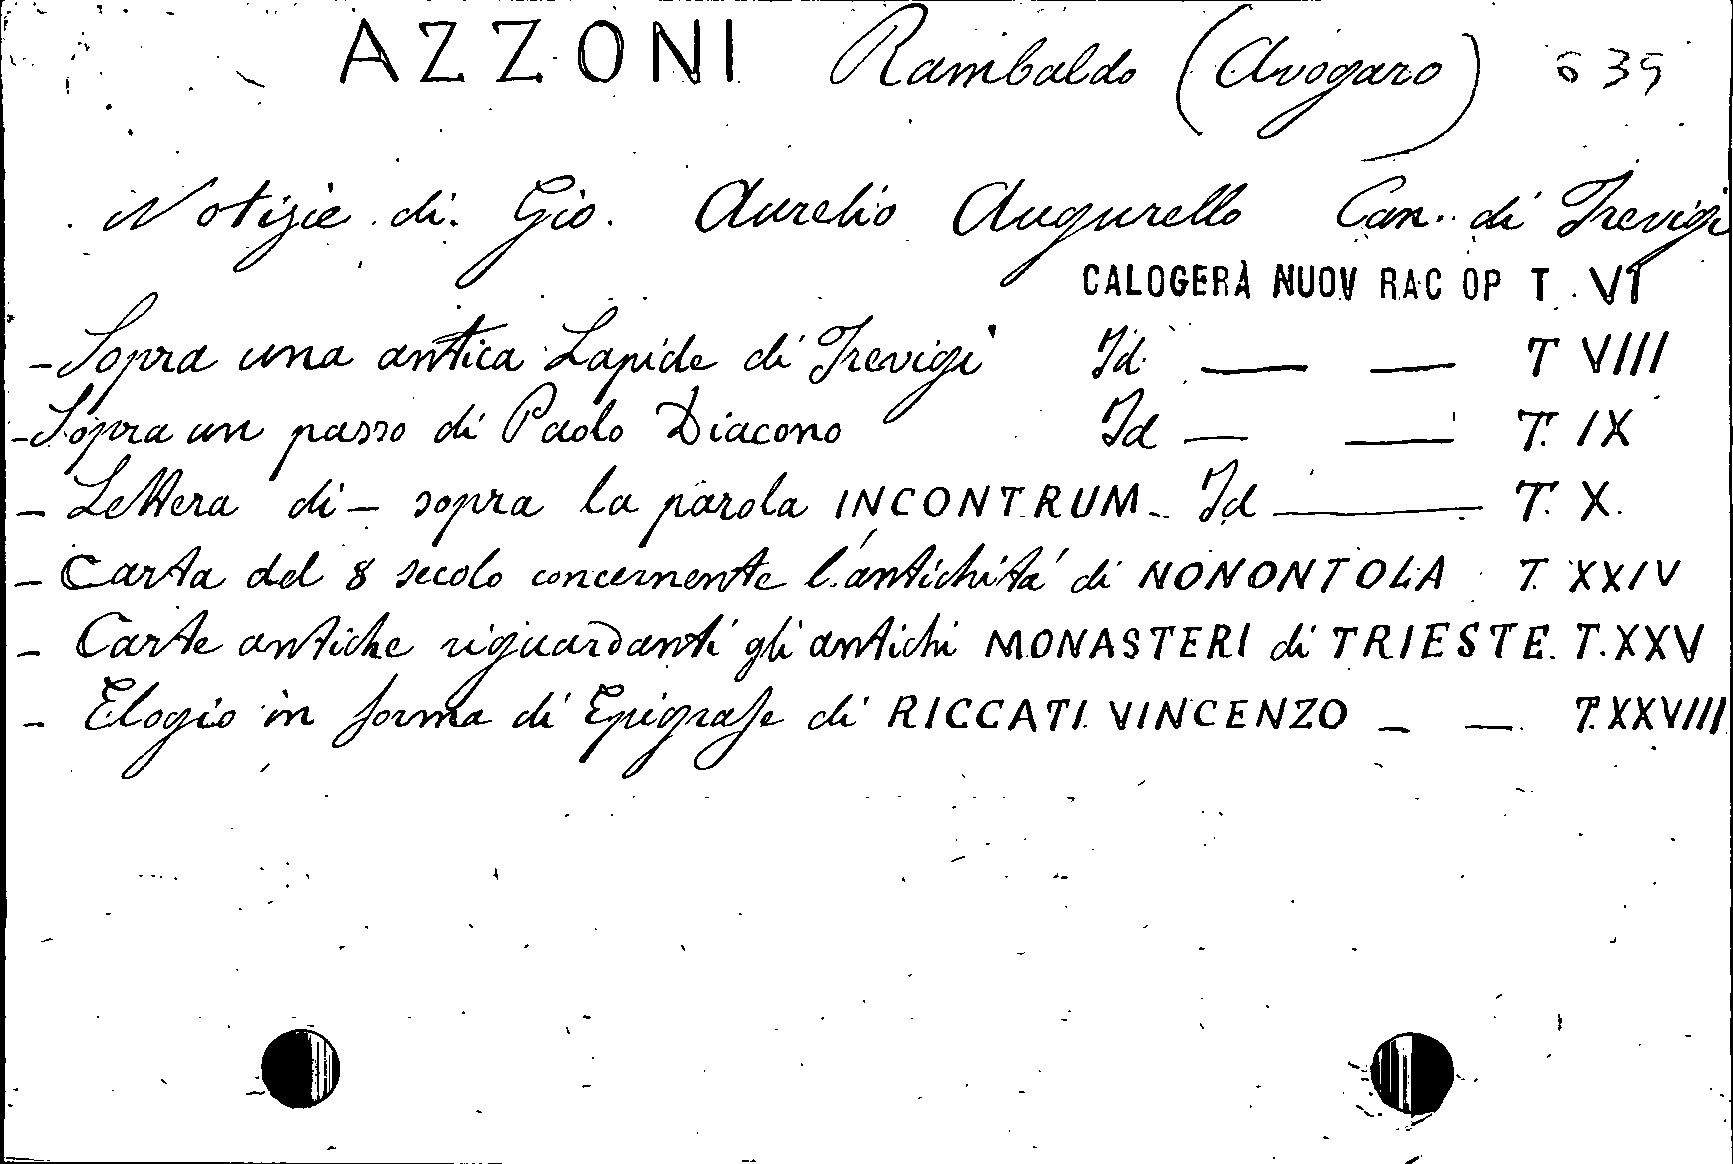 AZZONI Rambaldo (Avogaro) 639
Notizie di Gio. Aurelio Augurello Can. di Trevigi
CALOGERÀ NUOV RAC OP T. VI
- Sopra una antica Lapide di Trevigi Id. — — T VIII
- Sopra un passo di Paolo Diacono Id — — T. IX
- Lettera di - sopra la parola INCONTRUM - Id — T. X.
- Carta del 8 secolo concernente l'antichità di NONONTOLA T. XXIV
- Carte antiche riguardanti gli antichi MONASTERI di TRIESTE. T. XXV
- Elogio in forma di Epigrafe di RICCATI VINCENZO - — T. XXVIII